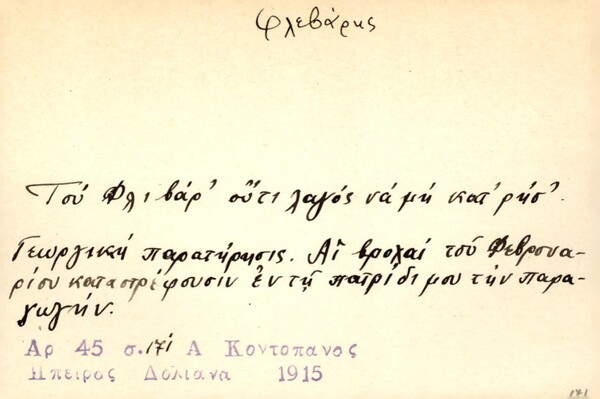 Φλεβάρης
Τού Φλιβάρ' οὔτι λαγός νά μή κατ'ρήσ'.
Γεωργική παρατήρησις. Αἱ βροχαί τοῦ Φεβρουα-
ρίου καταστρέφουσιν ἐν τῇ πατρίδι μου τήν παρα-
γωγήν.
Αρ 45 σ. 171 Α Κοντοπανος
Ηπειρος Δολιανα 1915
171